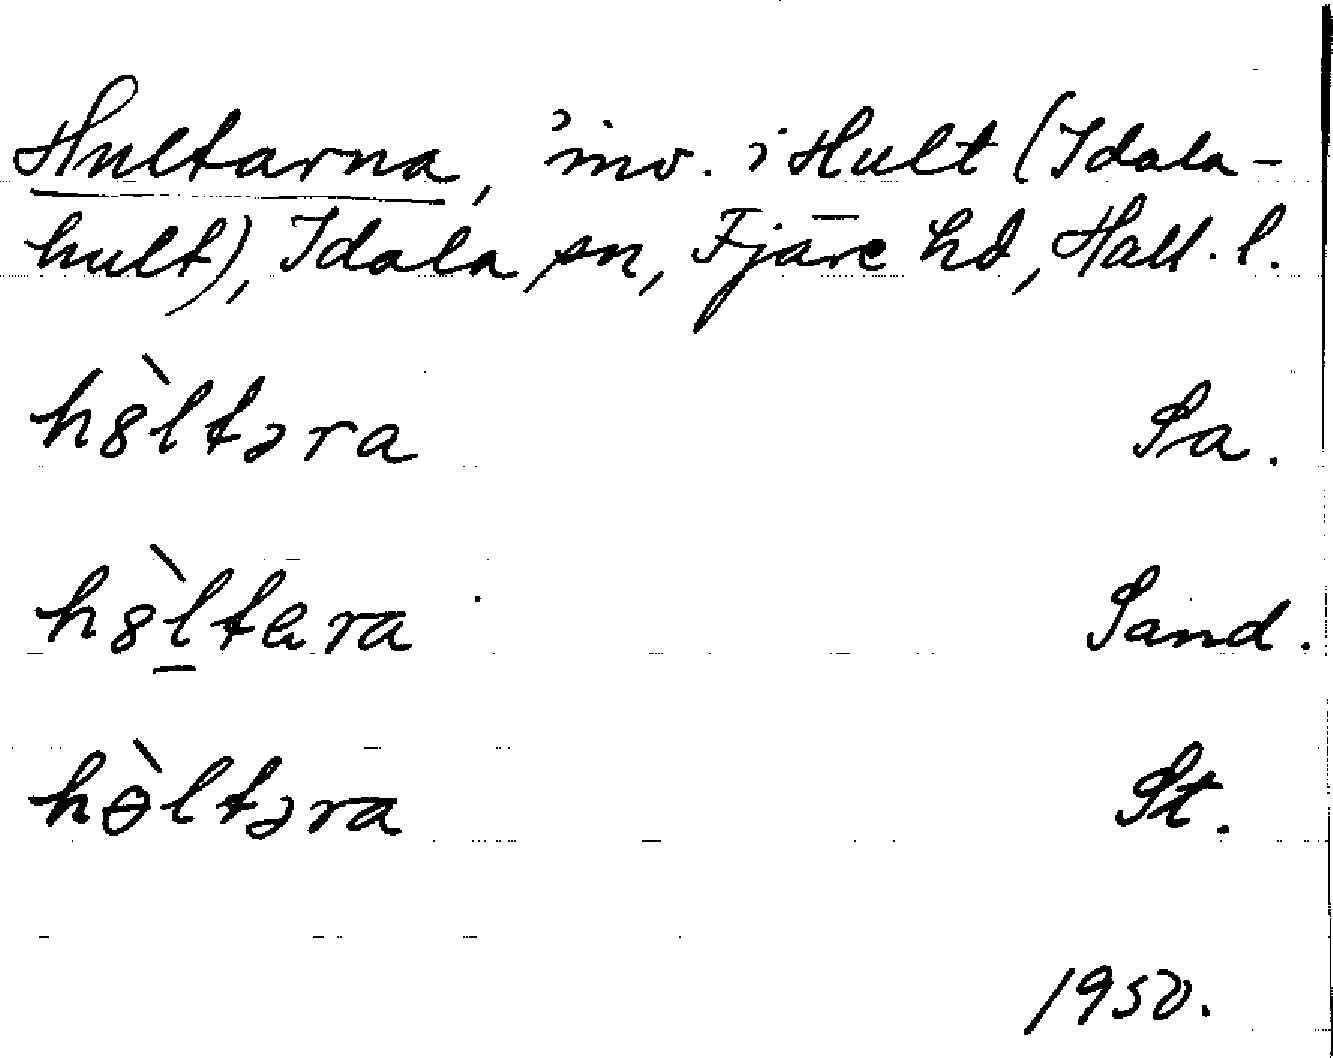 Hultarna, inv. i Hult (Idala-
hult), Idala sn, Fjäre hd, Hall. l.
hȣ̀ltəra Sa.
hȣ̀l̠tɐra Sand.
hɵ̀ltəra St.
1950.